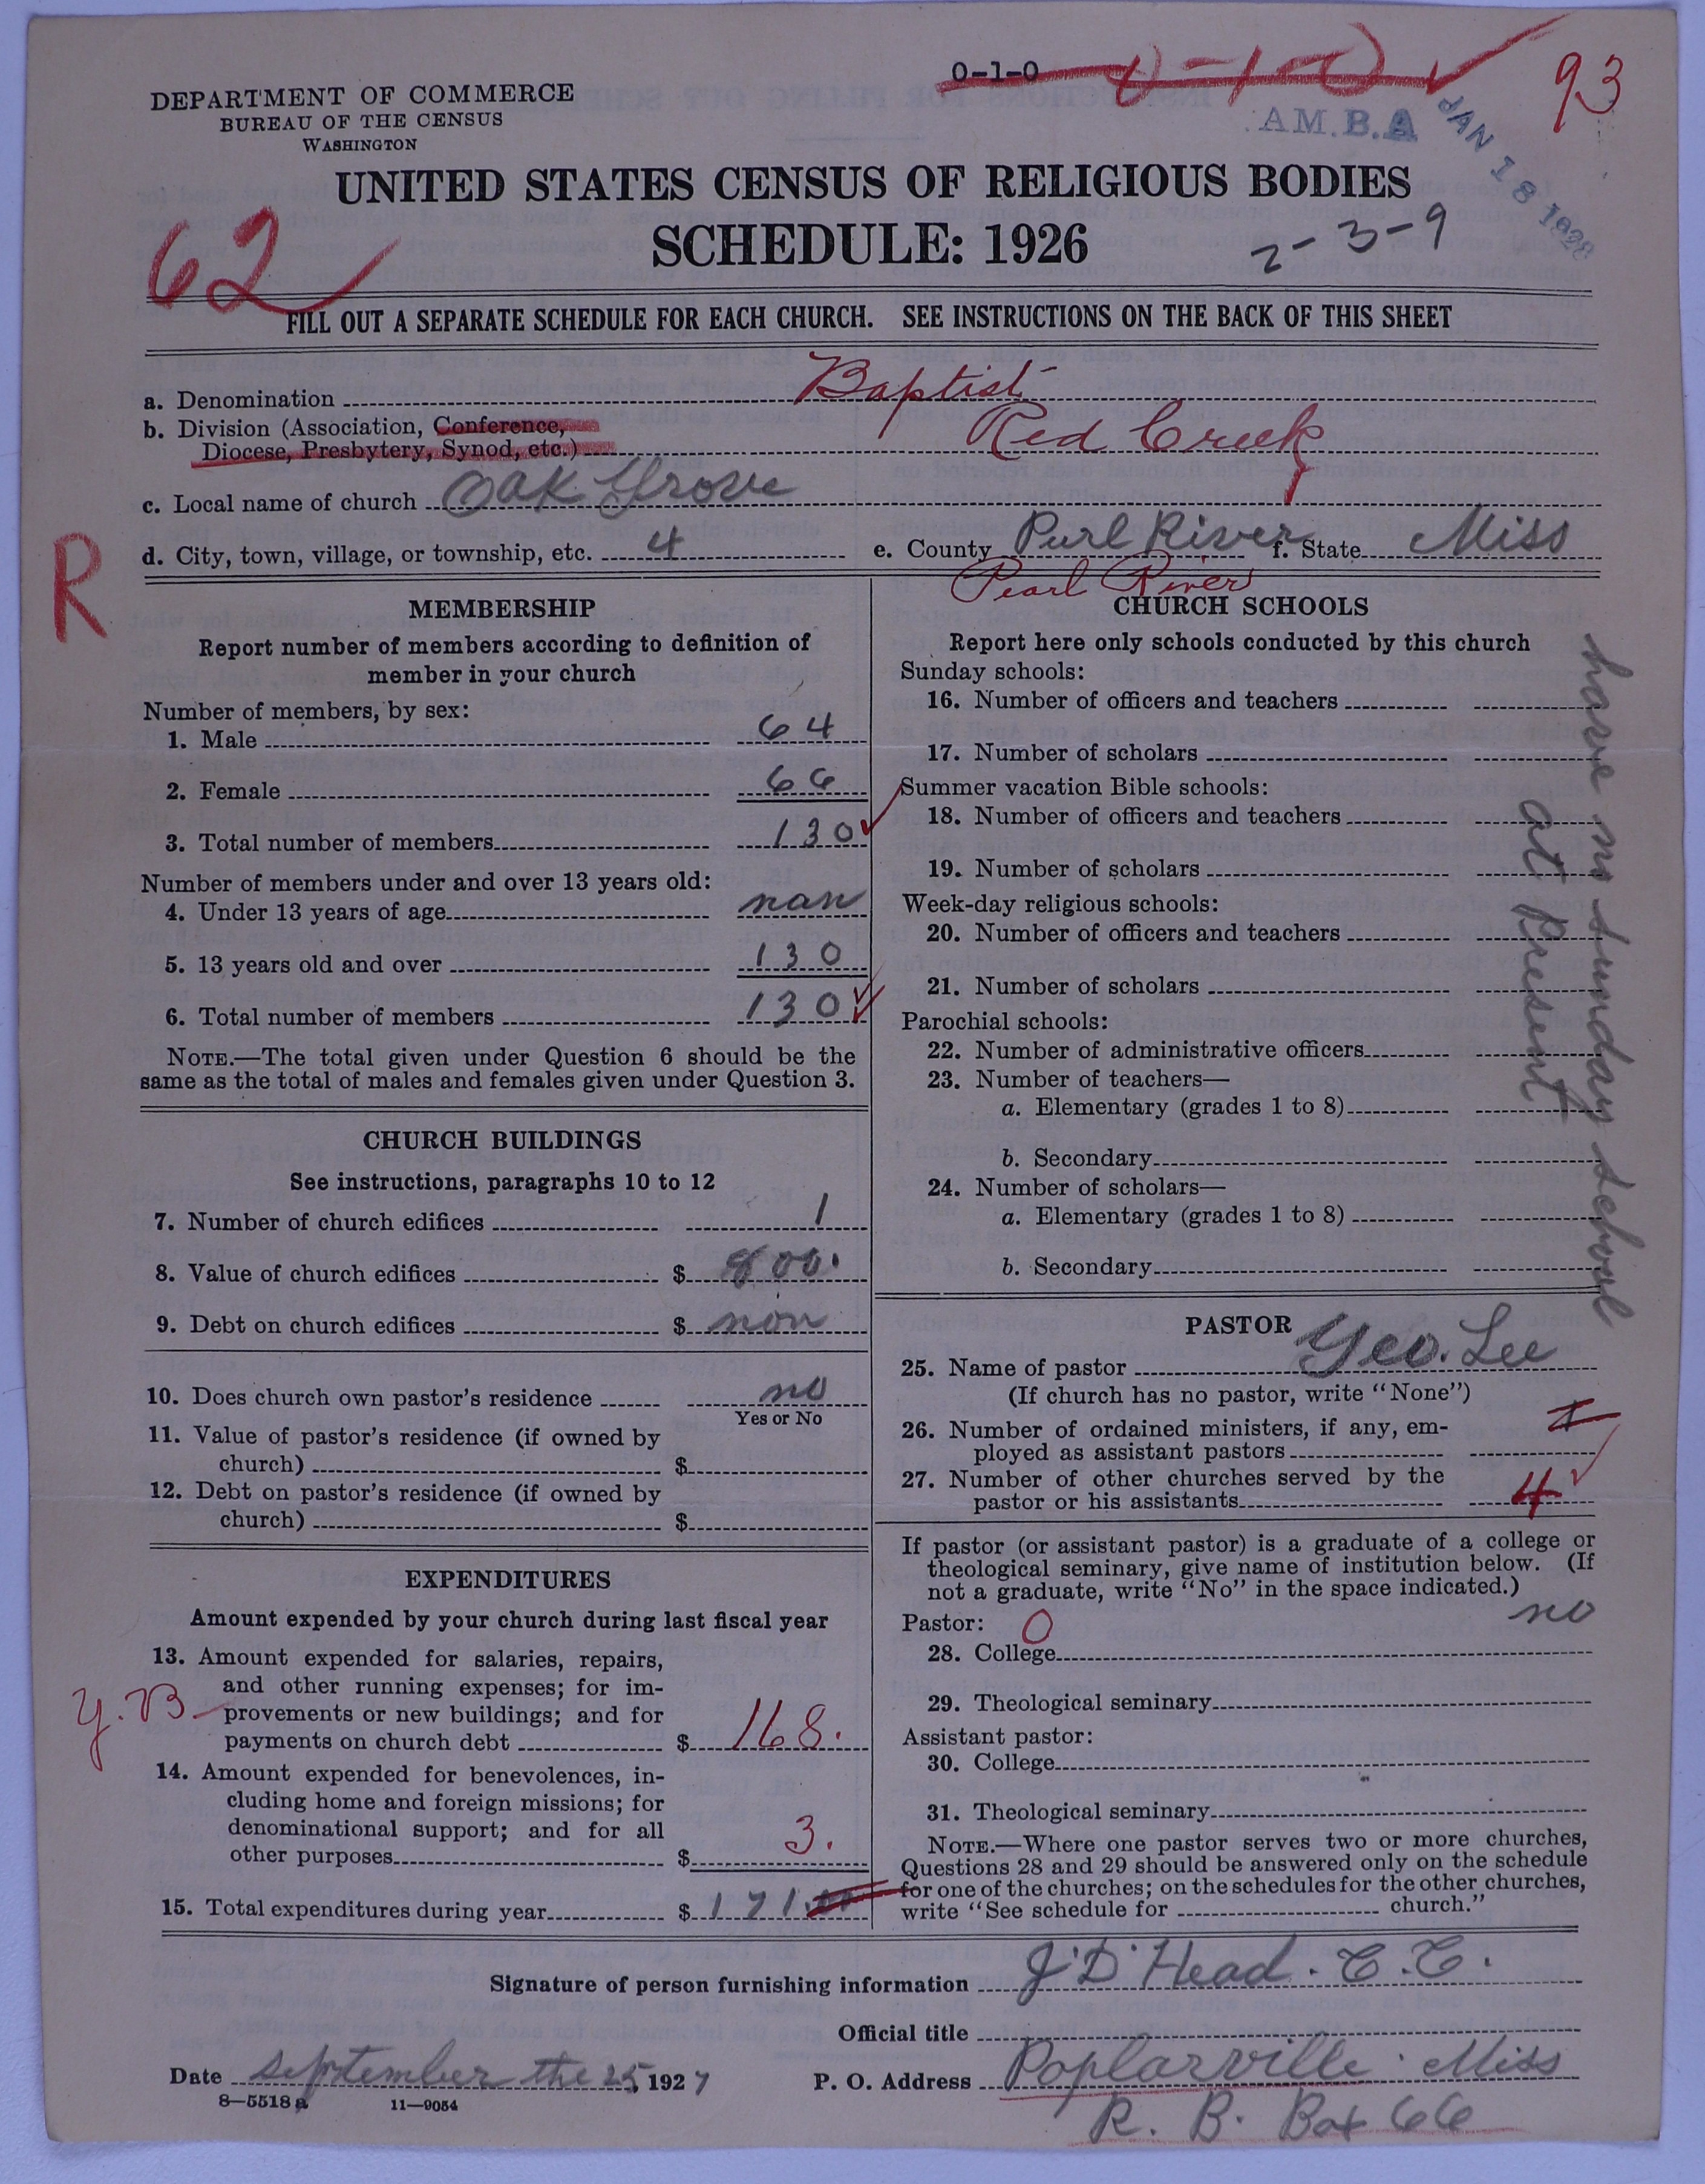 0-1-0 0-1-0 93
DEPARTMENT OF COMMERCE
BUREAU OF THE CENSUS
WASHINGTON
A.M.B.A JAN 18 1928
UNITED STATES CENSUS OF RELIGIOUS BODIES
SCHEDULE: 1926
2-3-9
62
FILL OUT A SEPARATE SCHEDULE FOR EACH CHURCH. SEE INSTRUCTIONS ON THE BACK OF THIS SHEET
a. Denomination Baptist
b. Division (Association, Conference,
Diocese, Presbytery, Synod, etc.) Red Creek
c. Local name of church Oak Grove
d. City, town, village, or township, etc. 4 e. County Purl River f. State Miss
Pearl River
R
MEMBERSHIP
Report number of members according to definition of
member in your church
Number of members, by sex:
1. Male 64
2. Female 66
3. Total number of members 130
Number of members under and over 13 years old:
4. Under 13 years of age nan
5. 13 years old and over 130
6. Total number of members 130
NOTE.—The total given under Question 6 should be the
same as the total of males and females given under Question 3.
CHURCH BUILDINGS
See instructions, paragraphs 10 to 12
7. Number of church edifices 1
8. Value of church edifices $ 800.
9. Debt on church edifices $ non
10. Does church own pastor's residence no
Yes or No
11. Value of pastor's residence (if owned by
church) $
12. Debt on pastor's residence (if owned by
church) $
EXPENDITURES
Amount expended by your church during last fiscal year
13. Amount expended for salaries, repairs,
and other running expenses; for im-
provements or new buildings; and for
payments on church debt $ 168.
Y.B
14. Amount expended for benevolences, in-
cluding home and foreign missions; for
denominational support; and for all
other purposes $ 3.
15. Total expenditures during year $ 171.00
CHURCH SCHOOLS
Report here only schools conducted by this church
Sunday schools:
16. Number of officers and teachers
17. Number of scholars
Summer vacation Bible schools:
18. Number of officers and teachers
19. Number of scholars
Week-day religious schools:
20. Number of officers and teachers
21. Number of scholars
Parochial schools:
22. Number of administrative officers
23. Number of teachers—
a. Elementary (grades 1 to 8)
b. Secondary
24. Number of scholars—
a. Elementary (grades 1 to 8)
b. Secondary
have no Sunday School
at Present
PASTOR
25. Name of pastor Geo. Lee
(If church has no pastor, write "None")
26. Number of ordained ministers, if any, em-
ployed as assistant pastors
27. Number of other churches served by the
pastor or his assistants 4
If pastor (or assistant pastor) is a graduate of a college or
theological seminary, give name of institution below. (If
not a graduate, write "No" in the space indicated.)
Pastor: 0 no
28. College
29. Theological seminary
Assistant pastor:
30. College
31. Theological seminary
NOTE.—Where one pastor serves two or more churches,
Questions 28 and 29 should be answered only on the schedule
for one of the churches; on the schedules for the other churches,
write "See schedule for church."
Signature of person furnishing information J. D. Head. C. C.
Official title
Date September the 25, 1927 P. O. Address Poplarville. Miss
8—5518 a 11—9054
R. B. Box 66